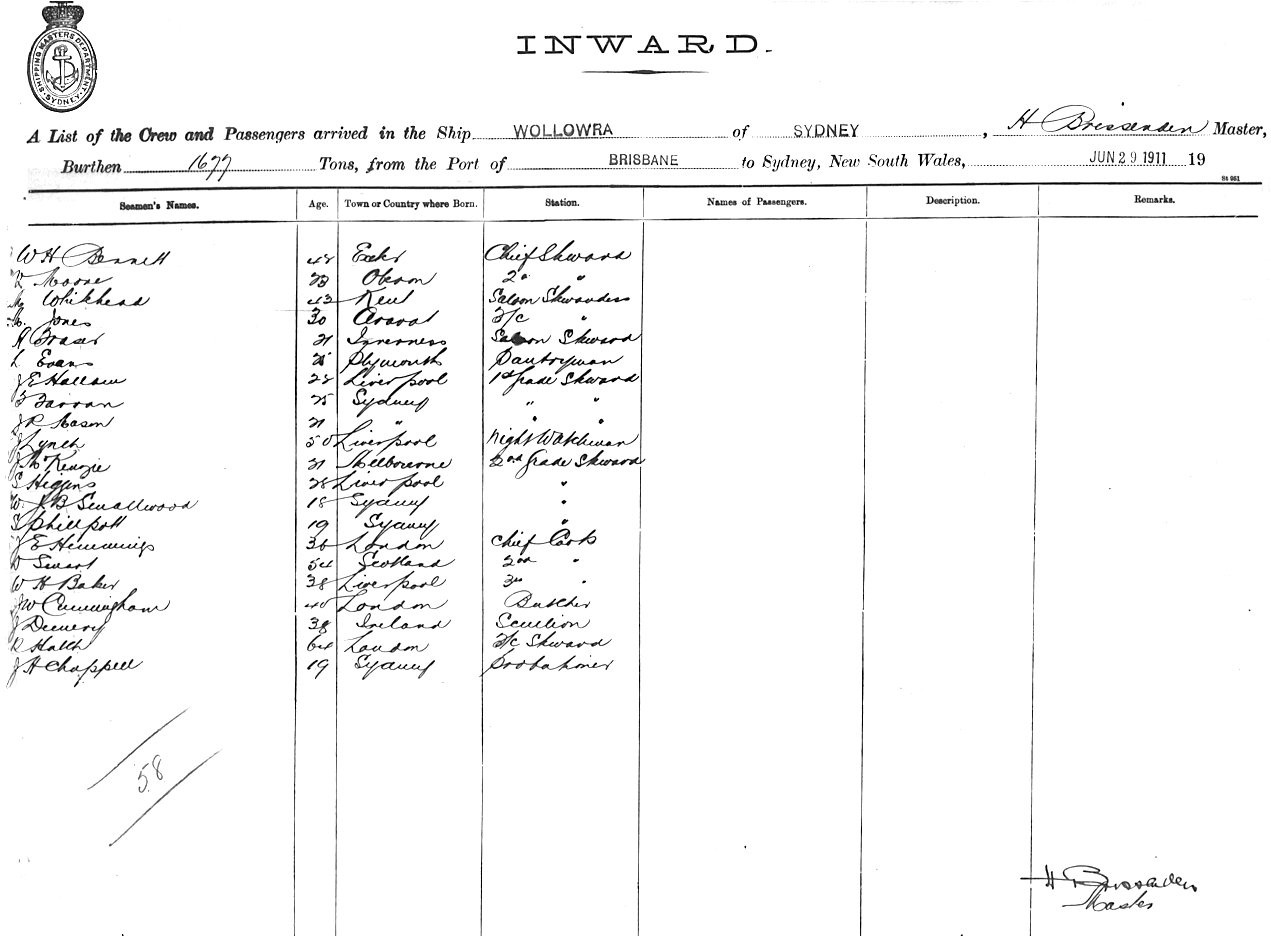 SHIPPING MASTERS DEPARTMENT
SYDNEY
INWARD.
A List of the Crew and Passengers arrived in the Ship WOLLOWRA of SYDNEY, H Brissenden Master,
Burthen 1677 Tons, from the Port of BRISBANE to Sydney, New South Wales, JUN 29 1911 19
St 961
Seamen's Names. Age. Town or Country where Born. Station. Names of Passengers. Description. Remarks.
W H Bennett 48 Exeter Chief Steward
Moore 23 2nd "
Whitehead 43 Kent Saloon Stewardess
M. Jones 30 Ararat 3/c "
A Fraser 21 Inverness Saloon Steward
L Evans Plymouth Pantryman
J E Hallam 28 Liverpool 1st Grade Steward
F Farran 25 Sydney " "
J R Mason 21 " " "
J Lynch 50 Liverpool Night Watchman
J McKenzie 21 Melbourne 2nd Grade Steward
S Higgins 28 Liverpool "
W. J B Smallwood 18 Sydney "
S Phillpott 19 Sydney "
J E Hemmings 36 London Chief Cook
54 Scotland 2nd "
W H Baker 38 Liverpool 3rd "
J W Cunningham 40 London Butcher
J 38 Ireland Scullion
R Hatch 64 London 3/c Steward
J H Chappell 19 Sydney Probationer
58
H Brissenden
Master